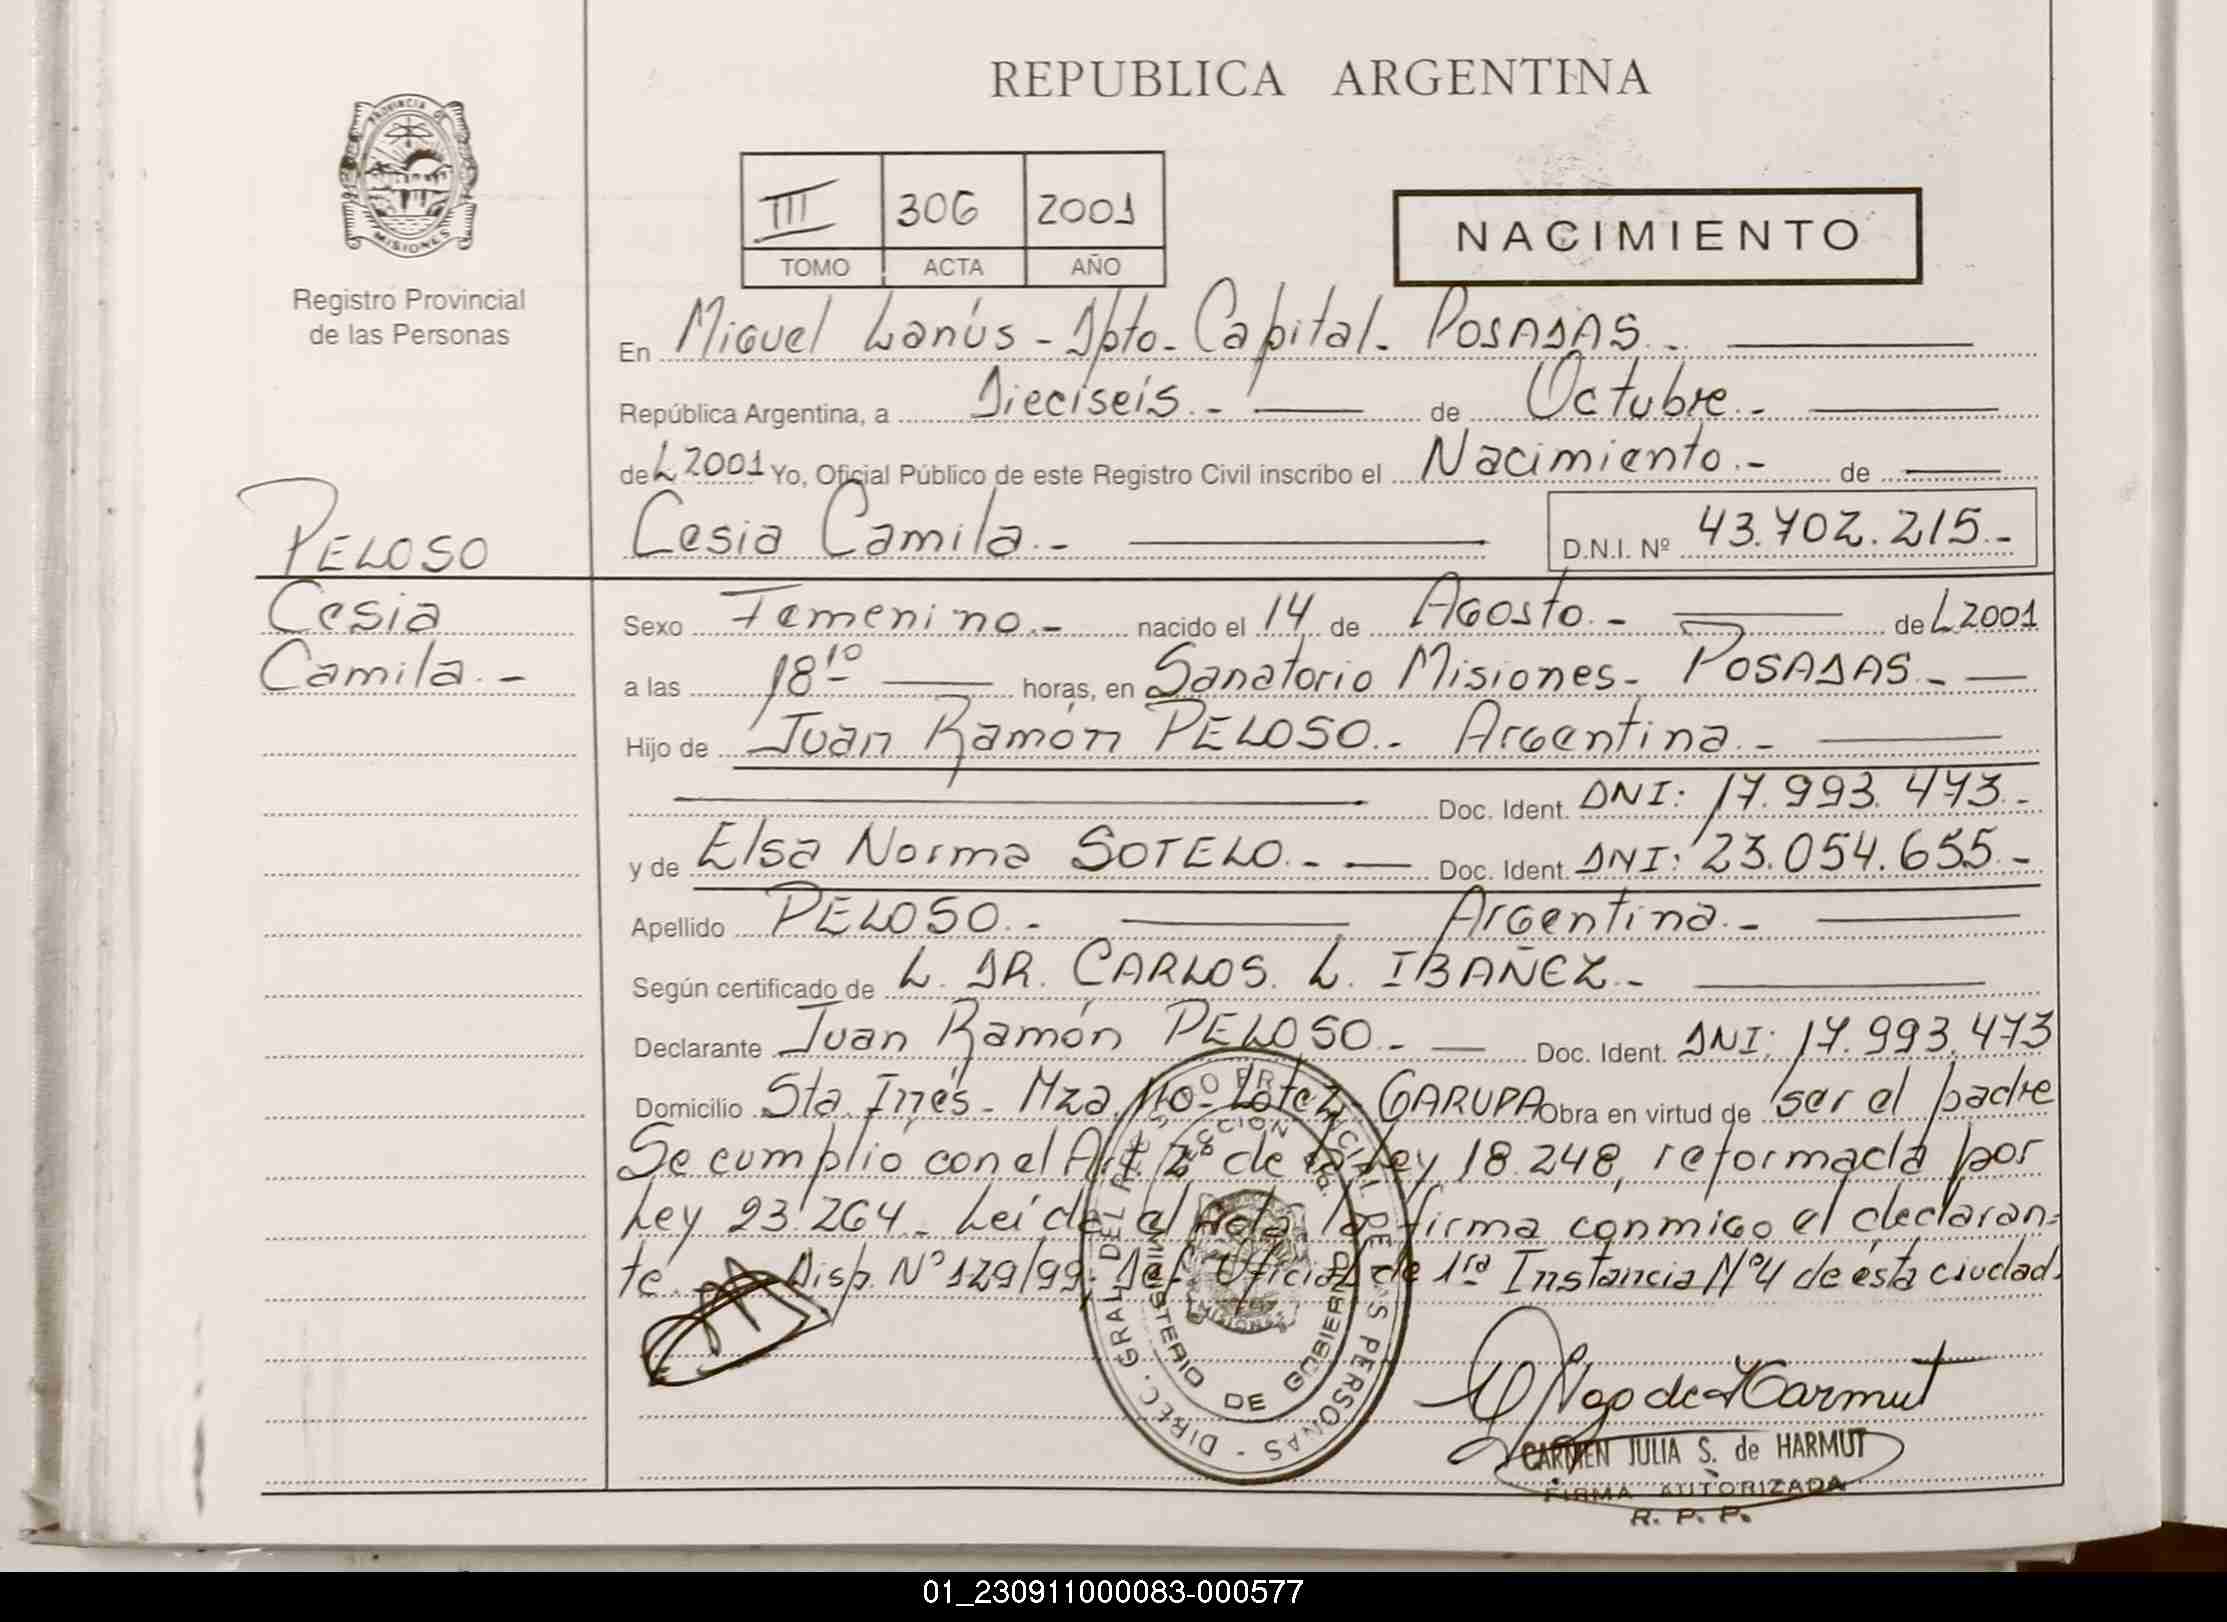 REPUBLICA ARGENTINA
PROVINCIA DE
MISIONES
Registro Provincial
de las Personas
III 306 2001
TOMO ACTA AÑO
NACIMIENTO
En Miguel Lanús - Dpto. Capital. POSADAS.-
República Argentina, a Dieciseis.- de Octubre.-
del 2001 Yo, Oficial Público de este Registro Civil inscribo el Nacimiento.- de
PELOSO
Cesia Camila.- D.N.I. Nº 43.702.215.-
Cesia
Camila.-
Sexo Femenino.- nacido el 14 de Agosto.- del 2001
a las 18¹⁰ horas, en Sanatorio Misiones- POSADAS.-
Hijo de Juan Ramón PELOSO.- Argentina.-
Doc. Ident. DNI: 17.993.473.-
y de Elsa Norma SOTELO.- Doc. Ident. DNI: 23.054.655.-
Apellido PELOSO.- Argentina.-
Según certificado de L. DR. CARLOS. L. IBAÑEZ.-
Declarante Juan Ramón PELOSO.- Doc. Ident. DNI: 17.993.473
Domicilio Sta. Inés- Mza. Lote GARUPA Obra en virtud de ser el padre
Se cumplió con el Art 2º de la Ley 18.248, reformada por
Ley 23.264.- Leída el Acta la firma conmigo el declaran-
te. Disp. Nº 129/99, Def. Oficial de 1ra Instancia Nº4 de ésta ciudad.
DIREC. GRAL. DEL REG PROVINCIAL DE LAS PERSONAS -
MINISTERIO DE GOBIERNO
MISIONES
CARMEN JULIA S. de HARMUT
FIRMA AUTORIZADA
R. P. P.
01_230911000083-000577